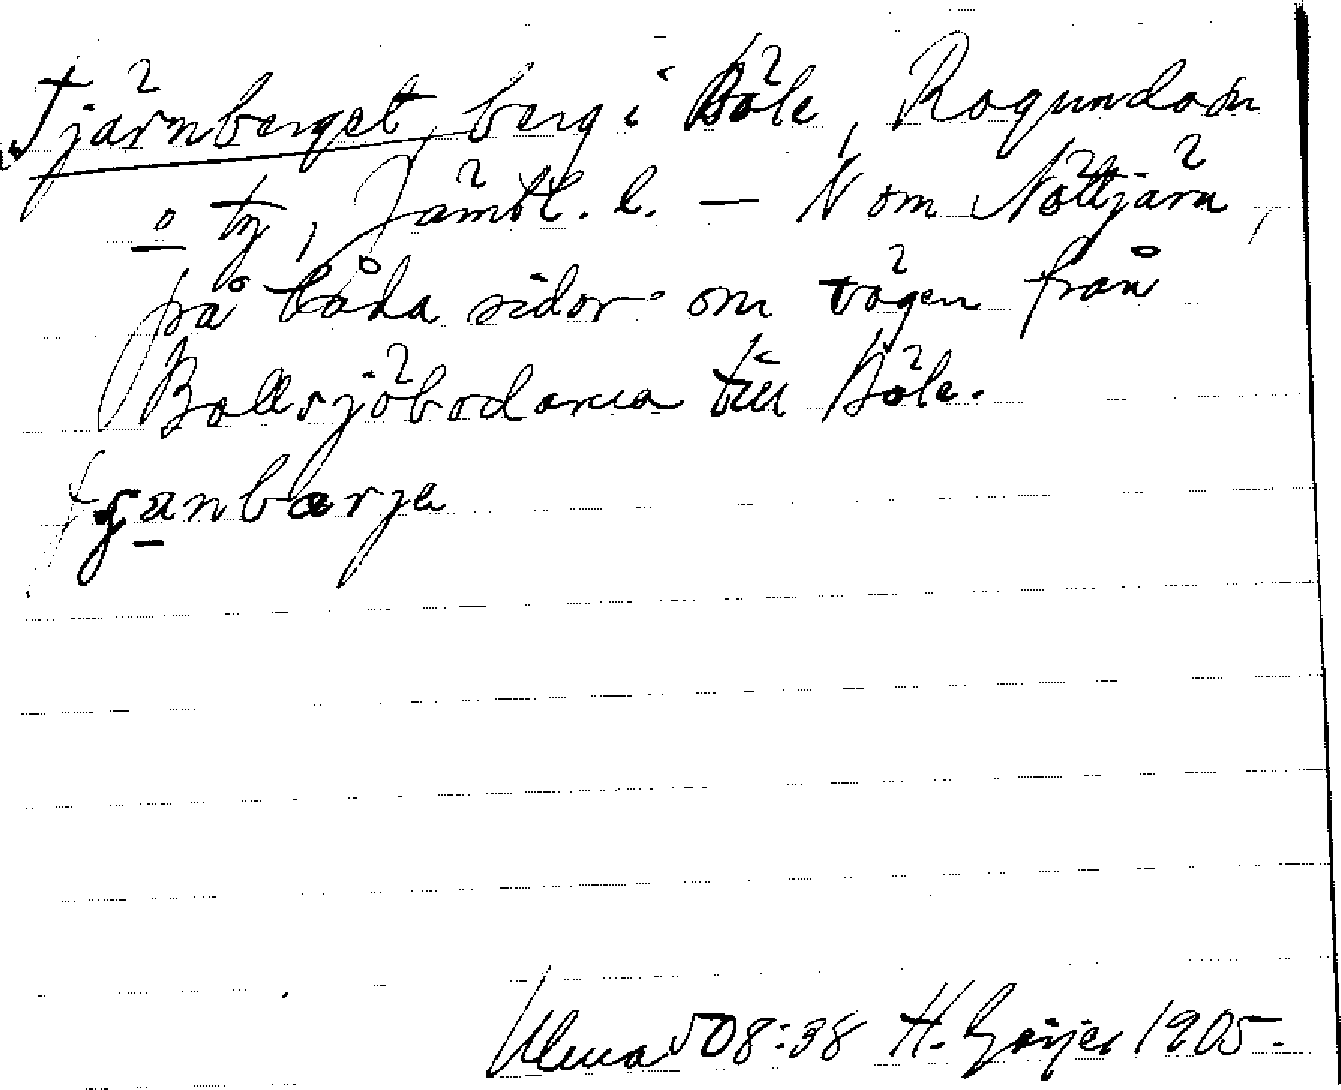 Tjärnberget, berg i Böle, Ragunda sn
o tg, Jämtl. l. — N om Nöttjärn,
på båda sidor om vägen från
Bollsjöbodarna till Böle.
H. Geijer 1905.